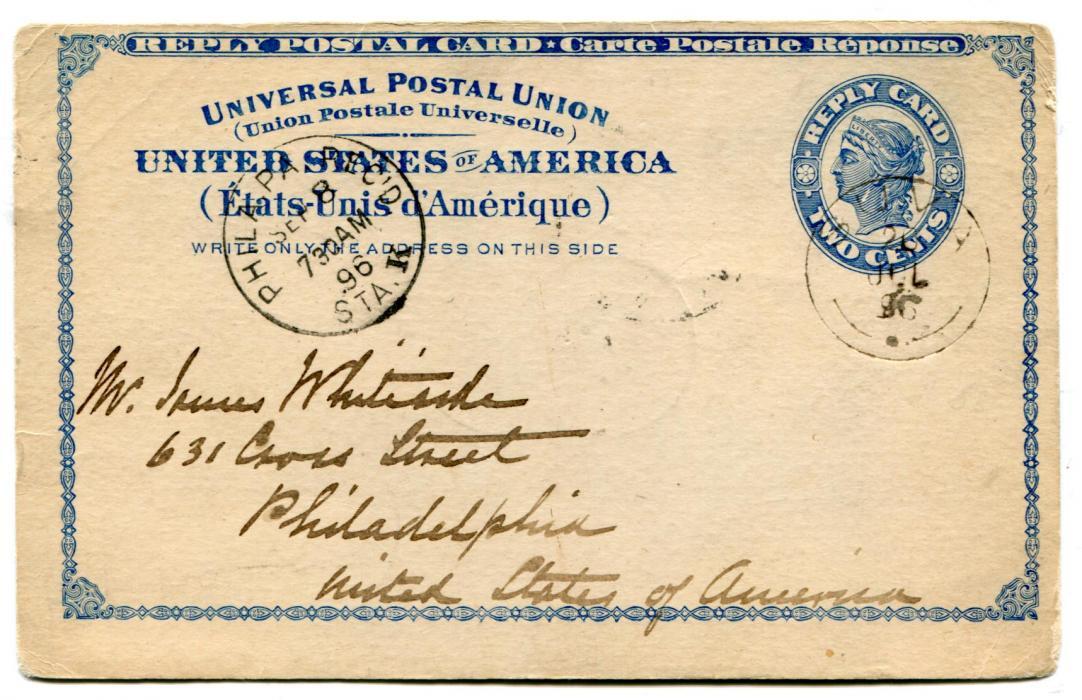 REPLY POSTAL CARD ★ Carte Postale Réponse
UNIVERSAL POSTAL UNION
(Union Postale Universelle)
UNITED STATES OF AMERICA
(États-Unis d'Amérique)
WRITE ONLY THE ADDRESS ON THIS SIDE
REPLY CARD
LIBERTY
TWO CENTS
PHILA. PA. REC'D
SEP 8
730AM
96
STA. K
26
JUL
96
Mr. James Whiteside
631 Cross Street
Philadelphia
United States of America